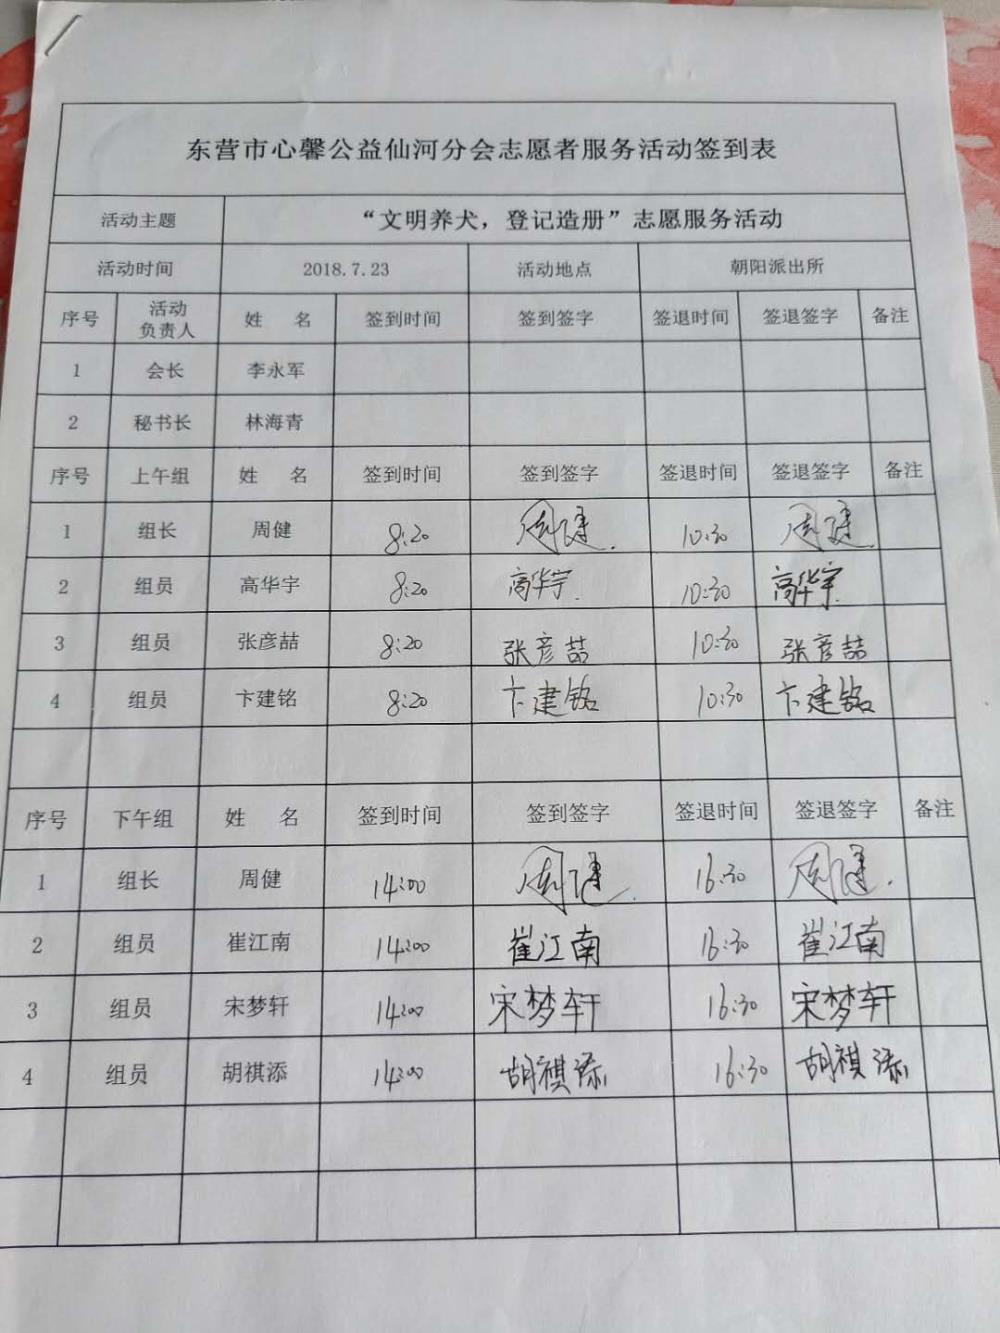 东营市心馨公益仙河分会志愿者服务活动签到表
活动主题 “文明养犬，登记造册”志愿服务活动
活动时间 2018.7.23 活动地点 朝阳派出所
序号 活动负责人 姓 名 签到时间 签到签字 签退时间 签退签字 备注
1 会长 李永军
2 秘书长 林海青
序号 上午组 姓 名 签到时间 签到签字 签退时间 签退签字 备注
1 组长 周健 8:20 周健 10:30 周健
2 组员 高华宇 8:20 高华宇 10:30 高华宇
3 组员 张彦喆 8:20 张彦喆 10:30 张彦喆
4 组员 卞建铭 8:20 卞建铭 10:30 卞建铭
序号 下午组 姓 名 签到时间 签到签字 签退时间 签退签字 备注
1 组长 周健 14:00 周健 16:30 周健
2 组员 崔江南 14:00 崔江南 16:30 崔江南
3 组员 宋梦轩 14:00 宋梦轩 16:30 宋梦轩
4 组员 胡祺添 14:00 胡祺添 16:30 胡祺添